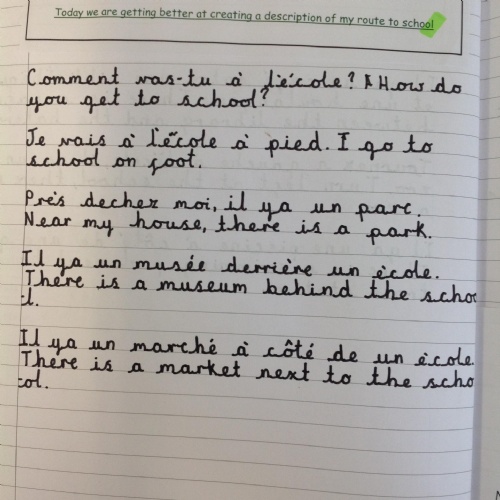 Today we are getting better at creating a description of my route to school
Comment vas-tu à l'école? How do
you get to school?
Je vais à l'école à pied. I go to
school on foot.
Près dechez moi, il ya un parc.
Near my house, there is a park.
Il ya un musée derrière un école.
There is a museum behind the schoo
l.
Il ya un marché à côté de un école.
There is a market next to the scho
ol.